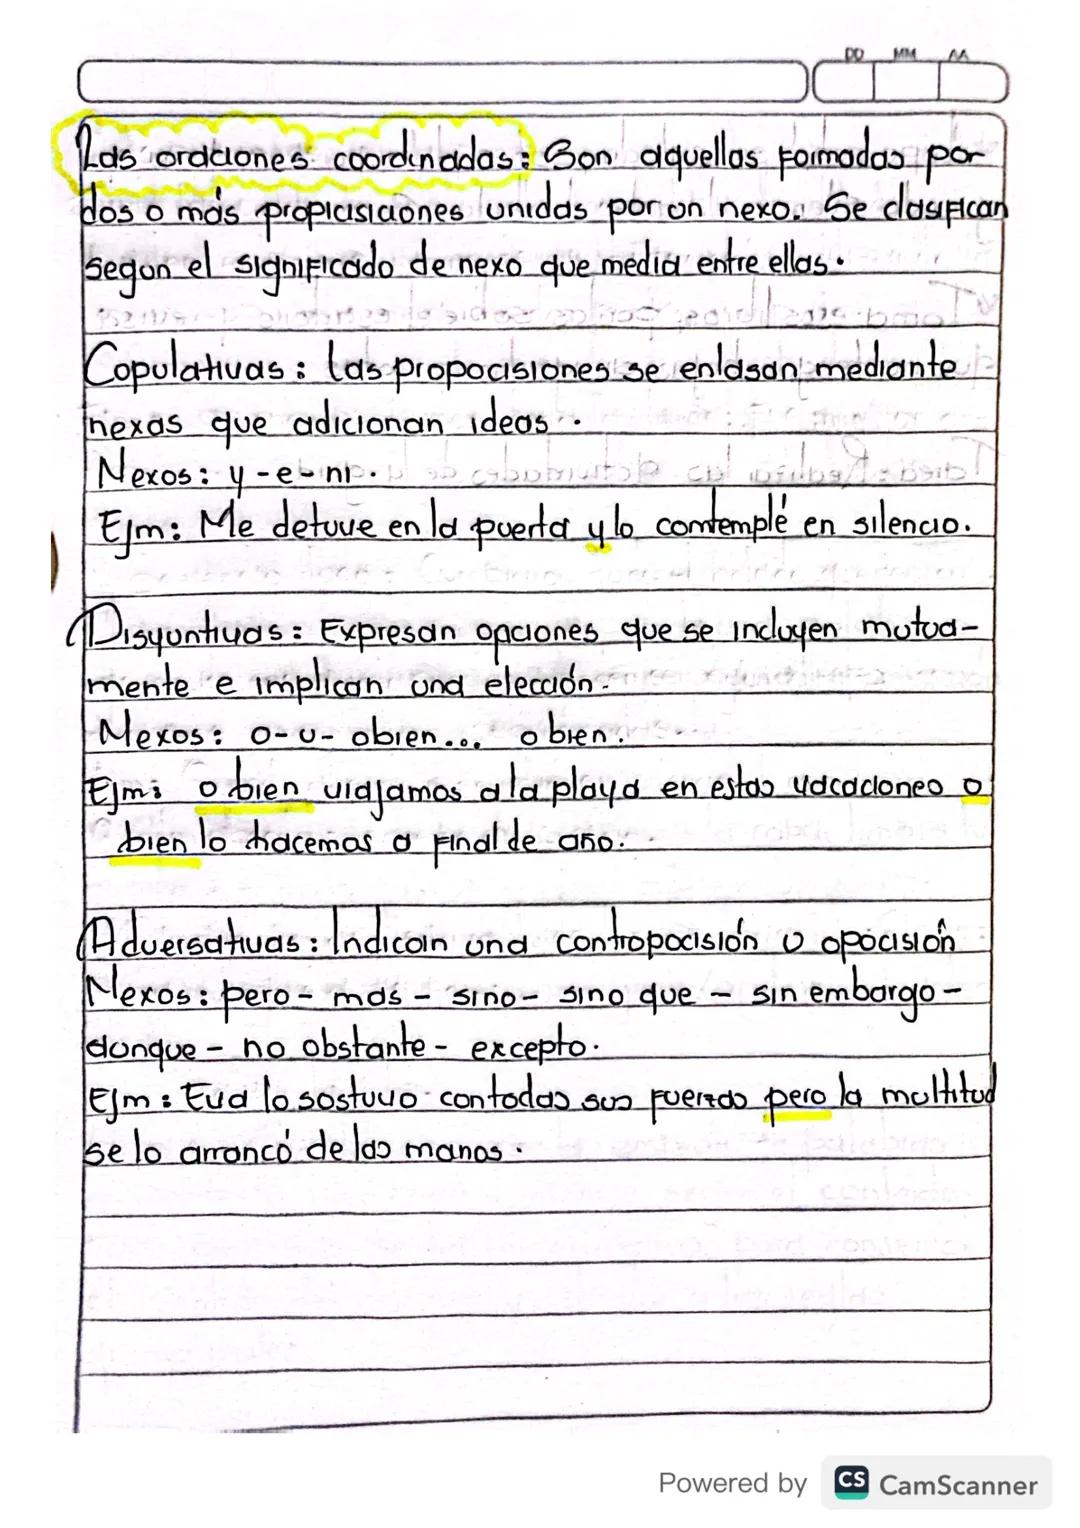 DD MM AA
Las oraciones coordinadas: Son aquellas formadas por
dos o más propicisiciones unidas por un nexo. Se clasifican
segun el significado de nexo que media entre ellas.
Copulativas: Las propocisiones se enlasan mediante
nexas que adicionan ideas.
Nexos: y - e - ni.
Ejm: Me detuve en la puerta y lo comtemplé en silencio.
Disyuntivas: Expresan opciones que se incluyen mutua-
mente e implican una elección.
Nexos: o - u - obien... o bien.
Ejm: o bien viajamos a la playa en estas vacaciones o
bien lo hacemos a final de año.
Adversativas: Indican una contropocisión u opocisión
Nexos: pero - mas - sino - sino que - sin embargo -
aunque - no obstante - excepto.
Ejm: Eva lo sostuvo contodas sus fuerzas pero la multitud
se lo arrancó de las manos.
Powered by CS CamScanner